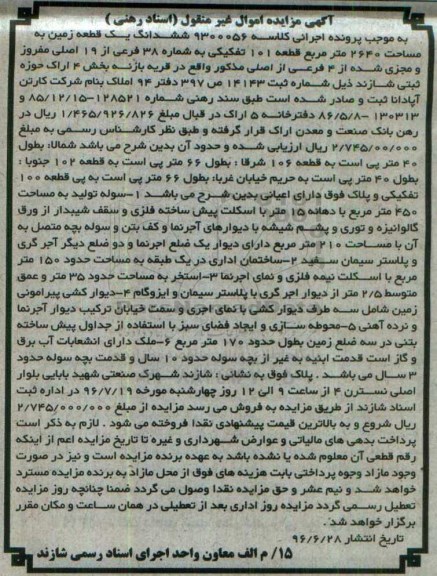 آگهی مزایده اموال غیر منقول (اسناد رهنی)
به موجب پرونده اجرائی کلاسه ۹۳۰۰۰۵۶ ششدانگ یک قطعه زمین به
مساحت ۲۶۴۰ متر مربع قطعه ۱۰۱ تفکیکی به شماره ۳۸ فرعی از ۱۹ اصلی مفروز
و مجزی شده از ۴ فرعی از اصلی مذکور واقع در قریه بازنه بخش ۴ اراک حوزه
ثبتی شازند ذیل شماره ثبت ۱۴۱۴۳ ص ۳۹۷ دفتر ۹۴ املاک بنام شرکت کارتن
آپادانا ثبت و صادر شده است طبق سند رهنی شماره ۱۲۸۵۲۱-۸۵/۱۲/۱۵ و
۱۳۰۳۱۳ -۸۶/۵/۸ دفترخانه ۵ اراک در قبال مبلغ ۱/۴۶۵/۹۲۶/۸۲۶ ریال در
رهن بانک صنعت و معدن اراک قرار گرفته و طبق نظر کارشناس رسمی به مبلغ
۲/۷۴۵/۰۰۰/۰۰۰ ریال ارزیابی شده و حدود آن بدین شرح می باشد شمالا: بطول
۴۰ متر پی است به قطعه ۱۰۶ شرقا : بطول ۶۶ متر پی است به قطعه ۱۰۲ جنوبا :
بطول ۴۰ متر پی است به حریم خیابان غربا: بطول ۶۶ متر پی است به پی قطعه ۱۰۰
تفکیکی و پلاک فوق دارای اعیانی بدین شرح می باشد ۱-سوله تولید به مساحت
۴۵۰ متر مربع با دهانه ۱۵ متر با اسکلت پیش ساخته فلزی و سقف شیبدار از ورق
گالوانیزه و توری و پشم شیشه با دیوارهای آجرنما و کف بتن و سوله بچه متصل به
آن با مساحت ۲۱۰ متر مربع دارای دیوار یک ضلع اجرنما و دو ضلع دیگر آجر گری
و پلاستر سیمان سفید ۲-ساختمان اداری در یک طبقه به مساحت حدود ۱۵۰ متر
مربع با اسکلت نیمه فلزی و نمای اجرنما ۳-استخر به مساحت حدود ۳۵ متر و عمق
متوسط ۲/۵ متر از دیوار اجر گری با پلاستر سیمان و ایزوگام ۴-دیوار کشی پیرامونی
زمین شامل سه طرف دیوار کشی با نمای اجری و سمت خیابان ترکیب دیوار آجرنما
و نرده آهنی ۵-محوطه سازی و ایجاد فضای سبز با استفاده از جداول پیش ساخته
بتنی در سه ضلع زمین بطول حدود ۱۷۰ متر مربع ۶-ملک دارای انشعابات آب برق
و گاز است قدمت ابنیه به غیر از بچه سوله حدود ۱۰ سال و قدمت بچه سوله حدود
۳ سال می باشد . پلاک فوق به نشانی : شازند شهرک صنعتی شهید بابایی بلوار
اصلی نسترن ۴ از ساعت ۹ الی ۱۲ روز چهارشنبه مورخه ۹۶/۷/۱۹ در اداره ثبت
اسناد شازند از طریق مزایده به فروش می رسد مزایده از مبلغ ۲/۷۴۵/۰۰۰/۰۰۰
ریال شروع و به بالاترین قیمت پیشنهادی نقدا فروخته می شود . لازم به ذکر است
پرداخت بدهی های مالیاتی و عوارض شهرداری و غیره تا تاریخ مزایده اعم از اینکه
رقم قطعی آن معلوم شده یا نشده باشد به عهده برنده مزایده است و نیز در صورت
وجود مازاد وجوه پرداختی بابت هزینه های فوق از محل مازاد به برنده مزایده مسترد
خواهد شد و نیم عشر و حق مزایده نقدا وصول می گردد ضمنا چنانچه روز مزایده
تعطیل رسمی گردد مزایده روز اداری بعد از تعطیلی در همان ساعت و مکان مقرر
برگزار خواهد شد.
تاریخ انتشار ۹۶/۶/۲۸
۱۵/ م الف معاون واحد اجرای اسناد رسمی شازند